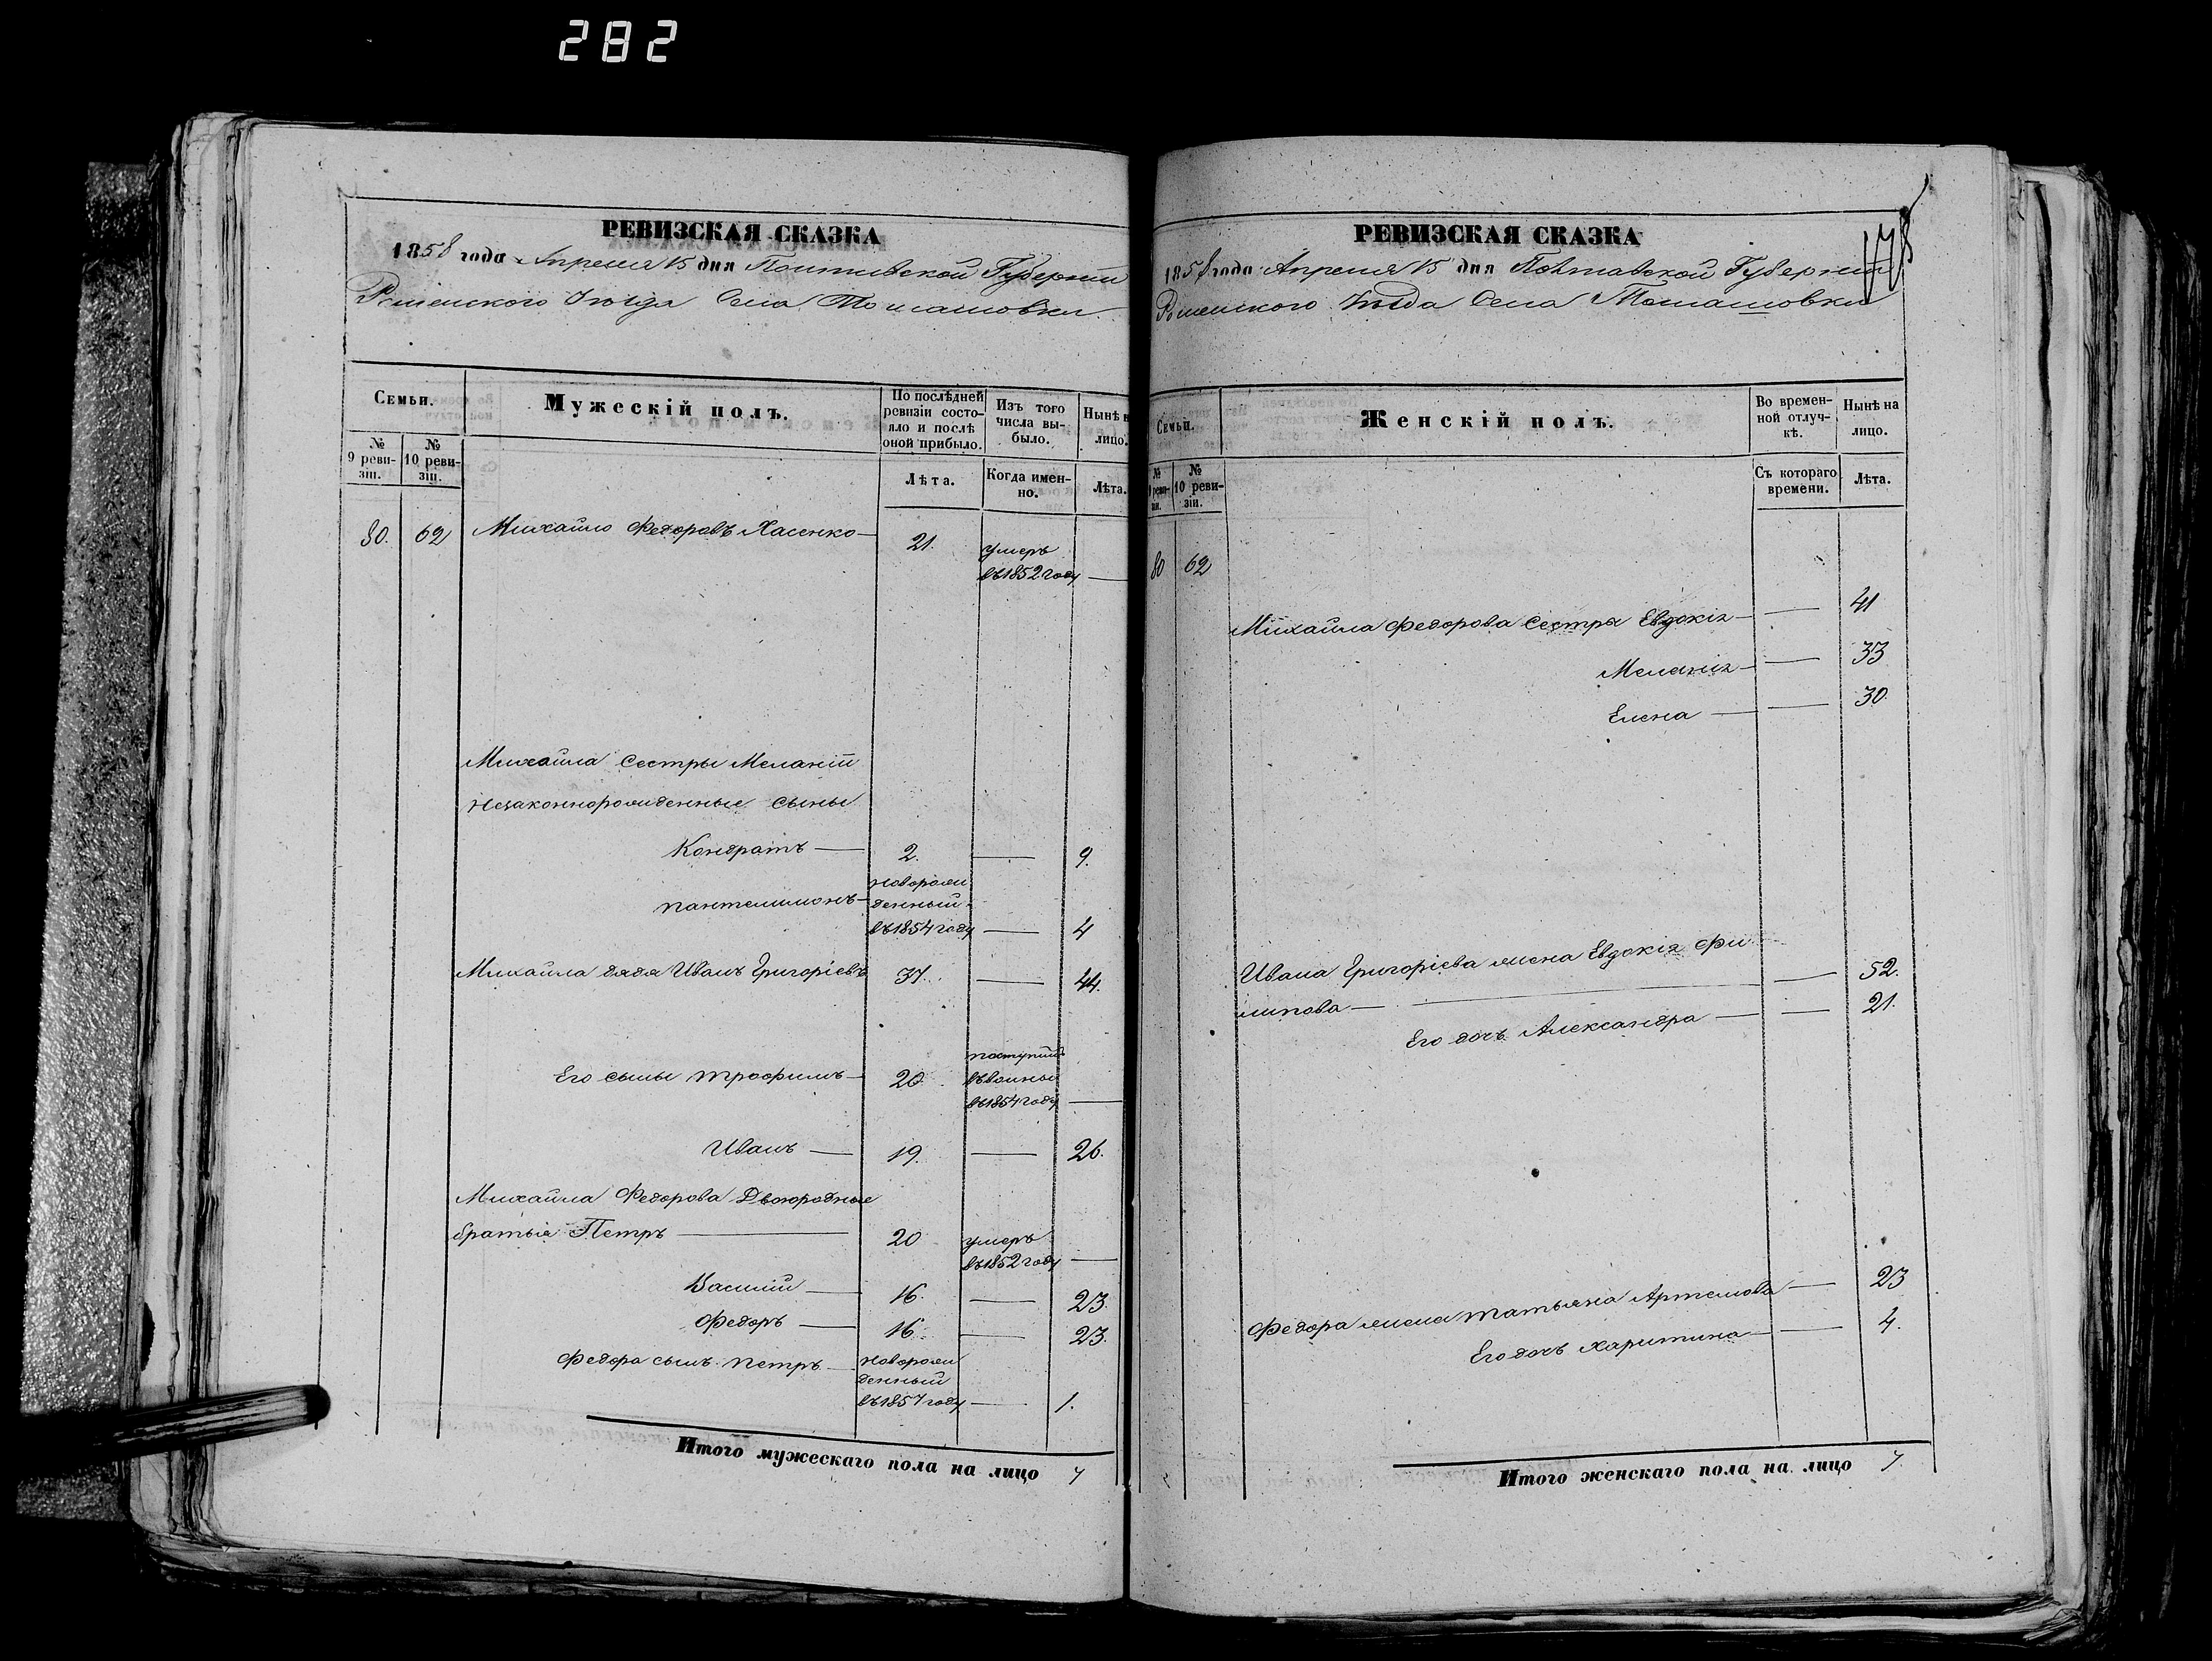 282
РЕВИЗСКАЯ СКАЗКА
1858 года Апреля 15 дня Полтавской Губернии
Роменского Уѣзда Села Томашовки
Семьи.
Мужескій полъ.
По послѣдней ревизіи состояло и послѣ оной прибыло.
Изъ того числа выбыло.
Нынѣ на лицо.
№ 9 ревизіи.
№ 10 ревизіи.
Лѣта.
Когда именно.
Лѣта.
80. 62 Михайло Федоровъ Хасенко 21. умеръ
въ 1852 году
Михайла сестры Меланіи
незаконнорожденные сыны
Кондратъ 2. 9.
Пантелимонъ новорож
денный
въ 1854 году 4
Михайла дядя Иванъ Григоріевъ 37. 44.
Его сыны Трофимъ 20 поступилъ
въ воины
въ 1854 году
Иванъ 19. 26.
Михайла Федорова Двоюродные
братья Петръ 20 умеръ
въ 1852 году
Василій 16. 23.
Федоръ 16. 23.
Федора сынъ Петръ новорож
денный
въ 1857 году 1.
Итого мужескаго пола на лицо 7
РЕВИЗСКАЯ СКАЗКА
178
1858 года Апреля 15 дня Полтавской Губернии
Роменского Уѣзда Села Томашовки
Семьи.
Женскій полъ.
Во временной отлучкѣ.
Нынѣ на лицо.
№ 9 ревизіи.
№ 10 ревизіи.
Съ котораго времени.
Лѣта.
80 62
Михайла Федорова сестра Евдокія 41
Меланія 33
Елена 30.
Ивана Григоріева жена Евдокія Фи
липова 52.
Его дочь Александра 21.
Федора жена Татьяна Артемова 23
Его дочь Харитина 4.
Итого женскаго пола на лицо 7.